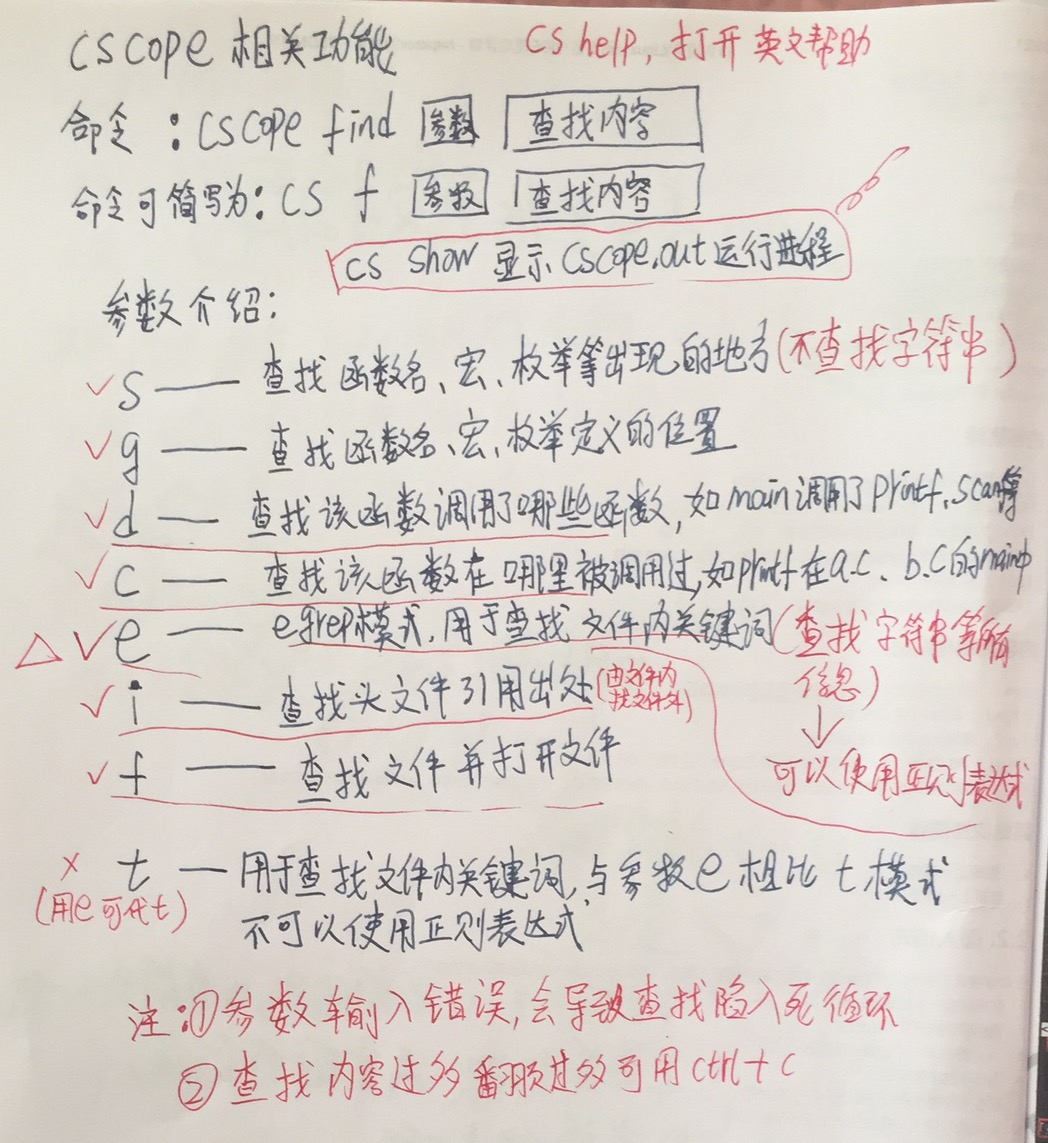 cscope 相关功能
cs help, 打开英文帮助
命令：cscope find 参数 查找内容
命令可简写为：cs f 参数 查找内容
cs show 显示 cscope.out 运行进程
参数介绍：
✓ s —— 查找函数名、宏、枚举等出现的地方(不查找字符串)
✓ g —— 查找函数名、宏、枚举定义的位置
✓ d —— 查找该函数调用了哪些函数, 如main调用了printf、scanf等
✓ c —— 查找该函数在哪里被调用过, 如printf在a.c、b.c的main中
△ ✓ e —— egrep模式, 用于查找文件内关键词(查找字符串等所有
信息)
↓
可以使用正则表达式
✓ i —— 查找头文件引用出处(由文件内
找文件外)
✓ f —— 查找文件并打开文件
× t — 用于查找文件内关键词, 与参数e相比 t 模式
(用e可代t)
不可以使用正则表达式
注:①参数输入错误, 会导致查找陷入死循环
②查找内容过多翻页过多可用ctrl+c